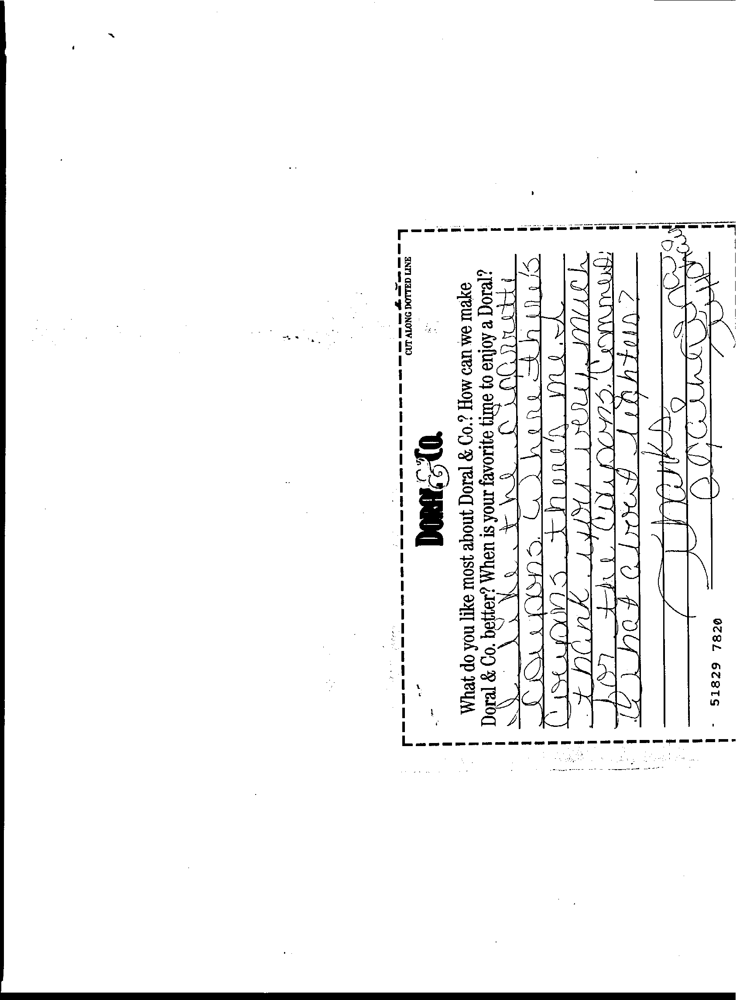 CUT ALONG DOTTED LINE
DORAL & CO.
What do you like most about Doral & Co.? How can we make
Doral & Co. better? When is your favorite time to enjoy a Doral?
I like the cigarrette
Coupons. Where there's
Coupons there's me. I
thank you very much
for the Coupons.
What about lighters?
Thanks
51829 7820